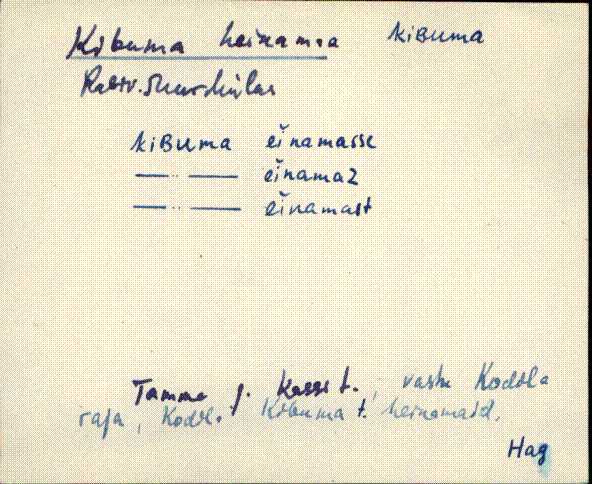 Kibuma heinamaa KiBuma
KiBuma einamasse
—"— einamaZ
—"— einamast
Tamme j. Kasse t., vastu Kodila
raja, Kodil. Kibuma t. heinamaid.
Hag